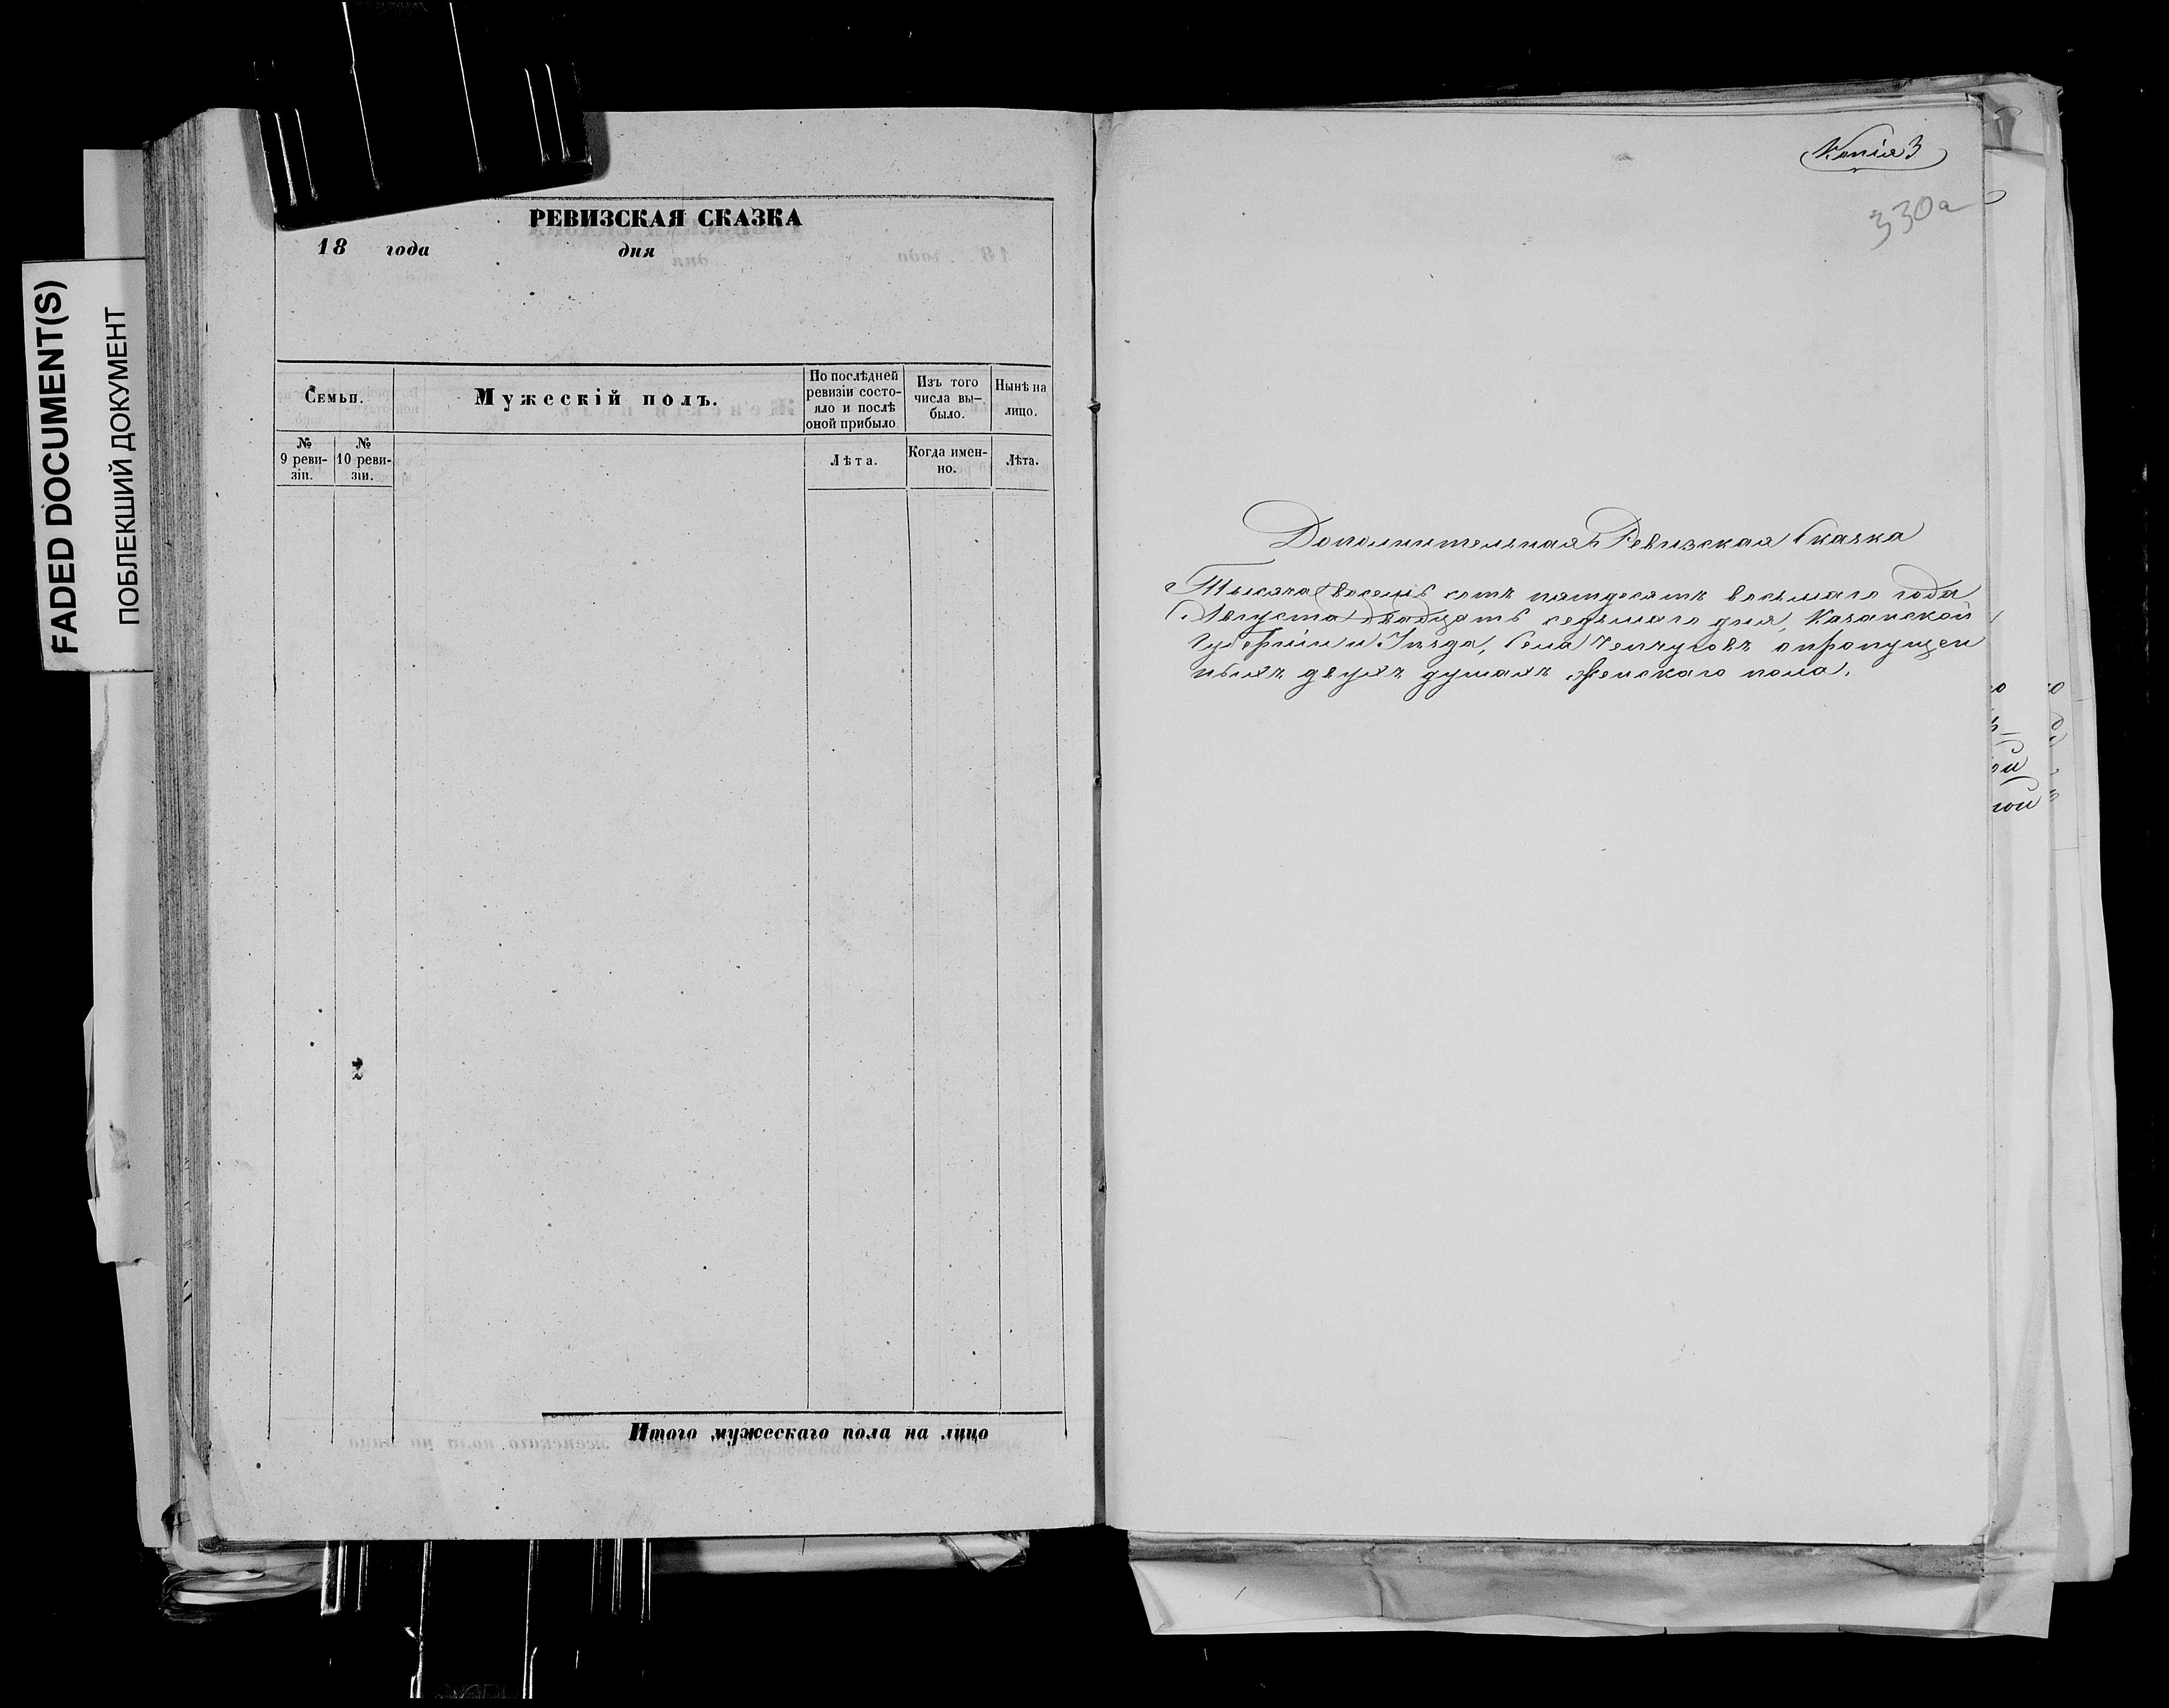 FADED DOCUMENT(S)
ПОБЛЕКШИЙ ДОКУМЕНТ
РЕВИЗСКАЯ СКАЗКА
18 года дня
Семьи.
Мужескій полъ.
По послѣдней
ревизіи состо-
яло и послѣ
оной прибыло
Изъ того
числа вы-
было.
Нынѣ на
лицо.
№
9 реви-
зіи.
№
10 реви-
зіи.
Лѣта.
Когда имен-
но.
Лѣта.
Итого мужескаго пола на лицо
Копія
330а
Дополнительная Ревизская Сказка
Тысяча восемь сотъ пятдесятъ восьмаго года
Августа двадцать седьмаго дня, Казанской
Губерніи и Уѣзда, Села опропущен
ныхъ двухъ душахъ женскаго пола.